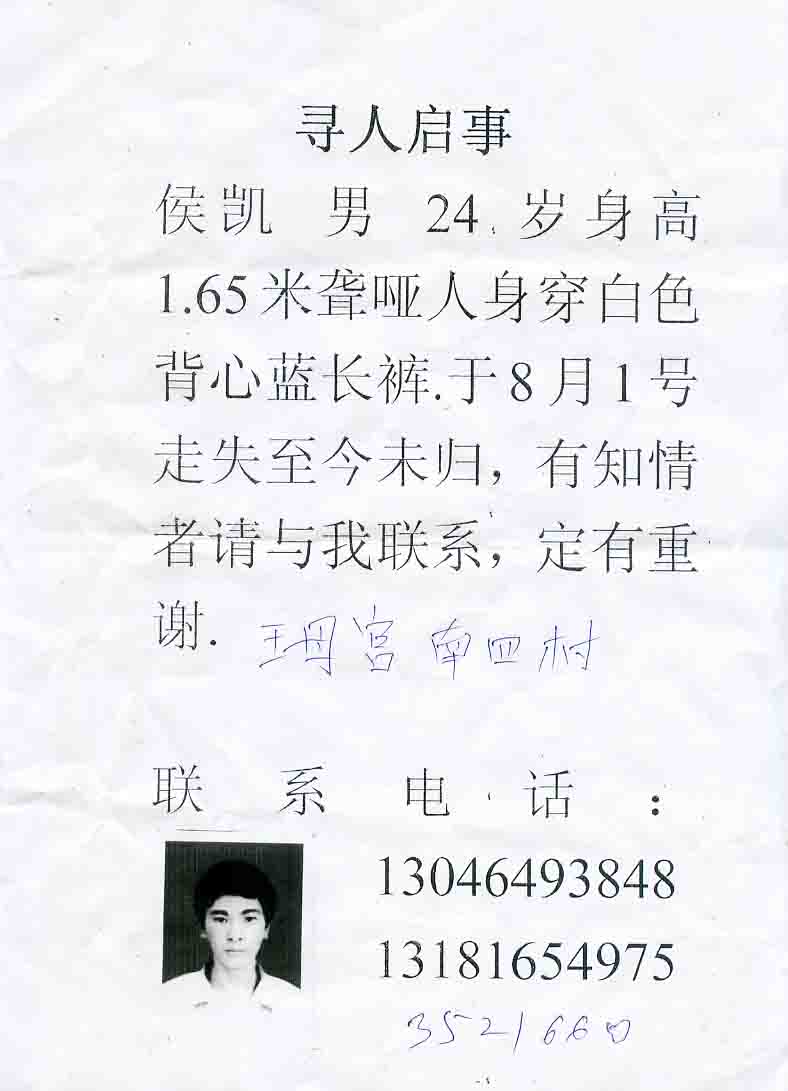 寻人启事
侯凯 男 24 岁身高
1.65米聋哑人身穿白色
背心蓝长裤.于8月1号
走失至今未归，有知情
者请与我联系，定有重
谢. 宫南四村
联系电话：
13046493848
13181654975
3521660